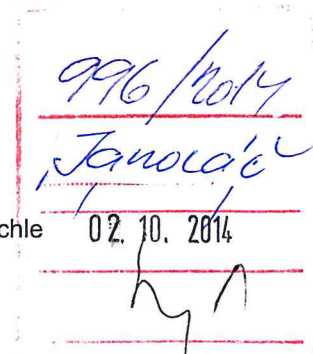 996/2014
Janováč
chle 02. 10. 2014